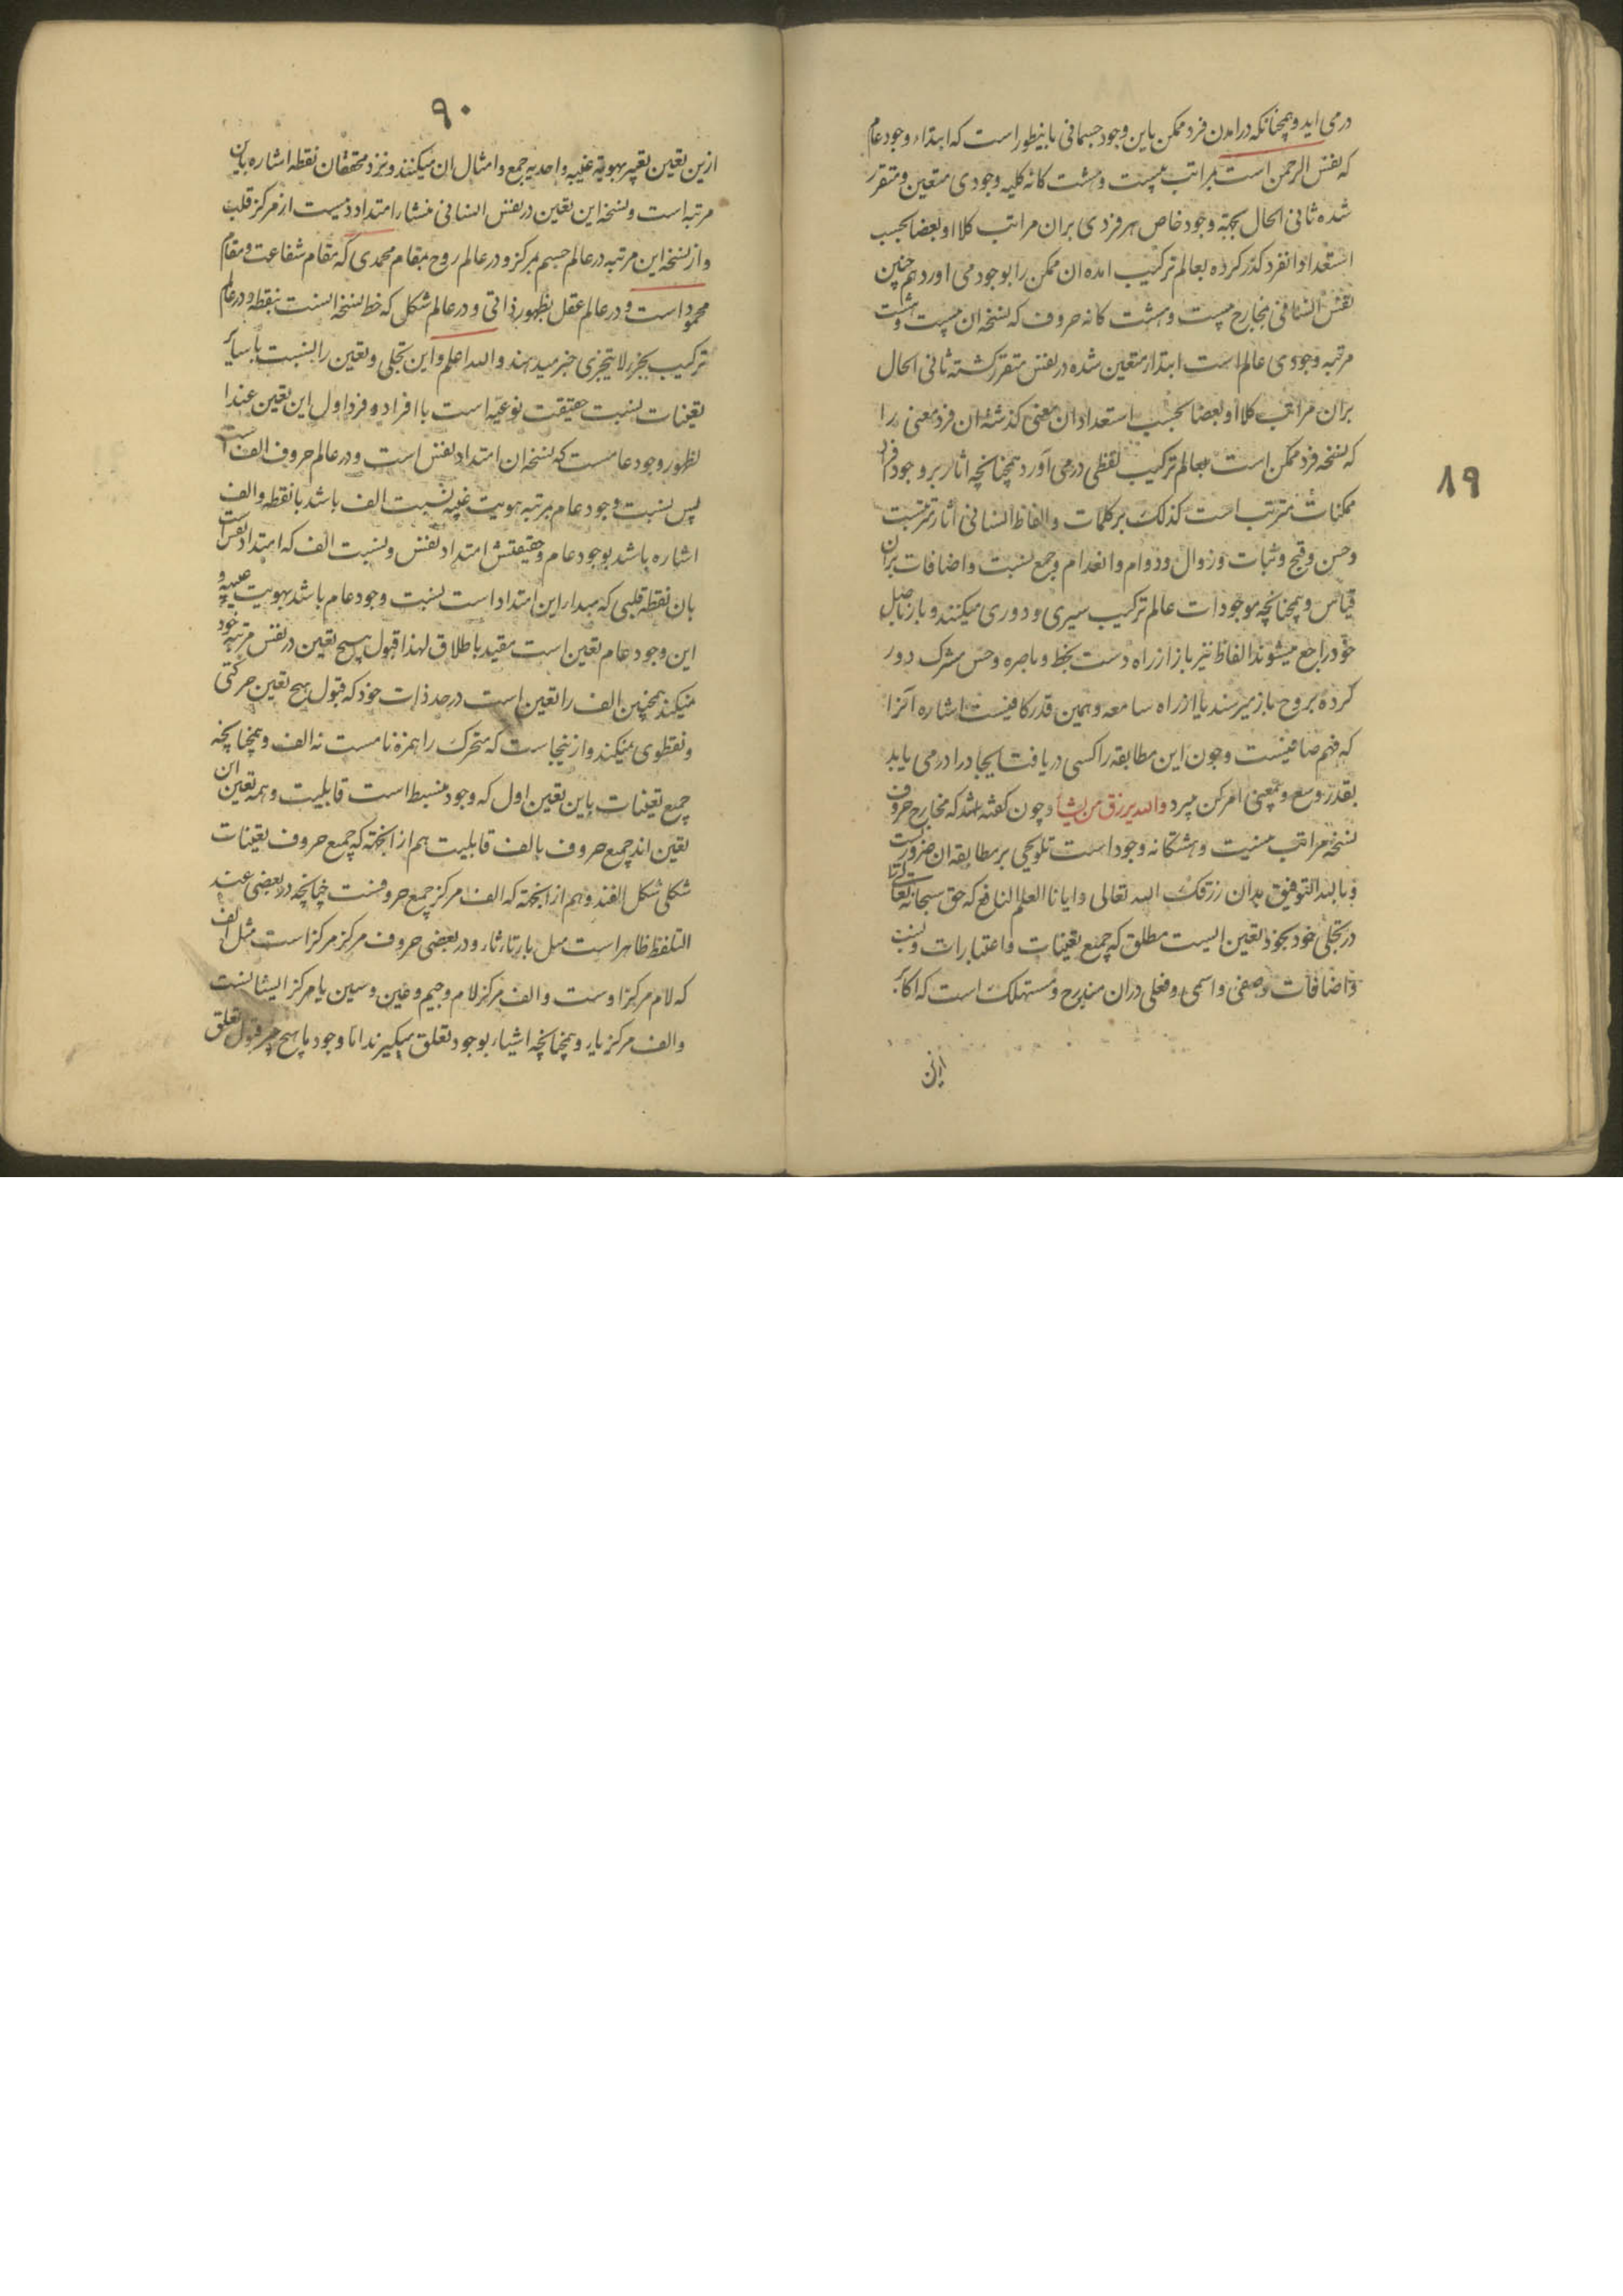 ۸۹
درمی اید و همچنانکه درامدن فرد ممکن باین وجود جسمانی باینطور است که ابتداء وجود عام
که نفس الرحمن است بمراتب بیست و هشت کانه کلیه وجودی متعین و متقرر
شده ثانی الحال بجهة وجود خاص هر فردی بران مراتب کلا او بعضا بحسب
استعداد انفرد کذر کرده بعالم ترکیب امده ان ممکن را بوجود می اورد هم چنین
نفس انسانی بمخارج بیست و هشت کانه حروف که نسخه ان بیست و هشت
مرتبه وجودی عالم است ابتداء متعین شده در نفس متقرر کشته ثانی الحال
بران مراتب کلا او بعضا بحسب استعداد ان معنی کذشته ان فرد معنی را
که نسخه فرد ممکن است بعالم ترکیب لفظی درمی آورد و همچنانچه اثار بر وجود افراد
ممکنات مترتب است کذلک بر کلمات و الفاظ انسانی آثار مترتبست
و حسن و قبح و ثبات و زوال و دوام و انعدام و جمع نسبت و اضافات بران
قیاس و همچنانچه موجودات عالم ترکیب سیری و دوری میکنند و باز باصل
خود راجع میشوند الفاظ نیز باز از راه دست بخط و باصره و حس مشترک دور
کرده بروح باز میرسند یا از راه سامعه و همین قدر کافیست اشاره آنرا
که فهم صافیست و چون این مطابقه را کسی دریافت ایجاد را درمی یابد
بقدر وسع و بمعنی امر کن میرد والله یرزق من یشاء و چون کفته شد که مخارج حروف
نسخه مراتب بیست و هشتکانه وجود است تلویحی بر مطابقه ان ضرورست
و بالله التوفیق بدان رزقک الله تعالی و ایانا العلم النافع که حق سبحانه تعالی را
در تجلی خود بخود تعین ایست مطلق که جمیع تعینات و اعتبارات و نسب
و اضافات وصفی و اسمی و فعلی دران مندرج و مستهلک است که اکابر
ازین
۹۰
ازین تعین تعبیر بهویة غیبیه و احدیه جمع و امثال ان میکنند و نزد محققان نقطه اشاره باین
مرتبه است و نسخه این تعین در نفس انسانی منشاء امتداد دیست از مرکز قلب
و از نسخه این مرتبه در عالم جسم بمرکز و در عالم روح بمقام محمدی که مقام شفاعت و مقام
محمود است و در عالم عقل بظهور ذاتی و در عالم شکلی که خط نسخه انست بنقطه و در عالم
ترکیب بجزء لا یتجزی خبر میدهند والله اعلم و این تجلی و تعین را بنسبت با سایر
تعینات نسبت حقیقت نوعیه است با افراد و فرد اول این تعین عند ا
لظهور وجود عامست که نسخه ان امتداد نفس است و در عالم حروف الف است
پس نسبت وجود عام بمرتبه هویت غیبیه نسبت الف باشد با نقطه و الف
اشاره باشد بوجود عام و حقیقتش امتداد نفس و نسبت الف که امتداد نفس است
بان نقطه قلبی که مبداء این امتداد است نسبت وجود عام باشد بهویت غیبیه و
این وجود عام تعین است مقید باطلاق لهذا قبول هیچ تعین در نفس مرتبه خود
نمیکند همچنین الف را تعین است در حد ذات خود که قبول هیچ تعین حرکتی
و نقطوی نمیکند و از ینجاست که متحرک را همزه نامست نه الف و همچنانچه
جمیع تعینات باین تعین اول که وجود منبسط است قابلیت و همه تعین ان
تعین اند جمیع حروف بالف قابلیت هم از انجهة که جمیع حروف تعینات
شکلی شکل الفند و هم از انجهة که الف مرکز جمیع حروفست چنانچه در بعضی عند
التلفظ ظاهر است مثل باء تاء ثاء و در بعضی حروف مرکز مرکز است مثل الف
که لام مرکز اوست و الف مرکز لام و جیم و عین و سین یا مرکز ایشانست
و الف مرکز یاء و همچنانچه اشیاء بوجود تعلق میکیرند اما وجود با هیچ قبول تعلق